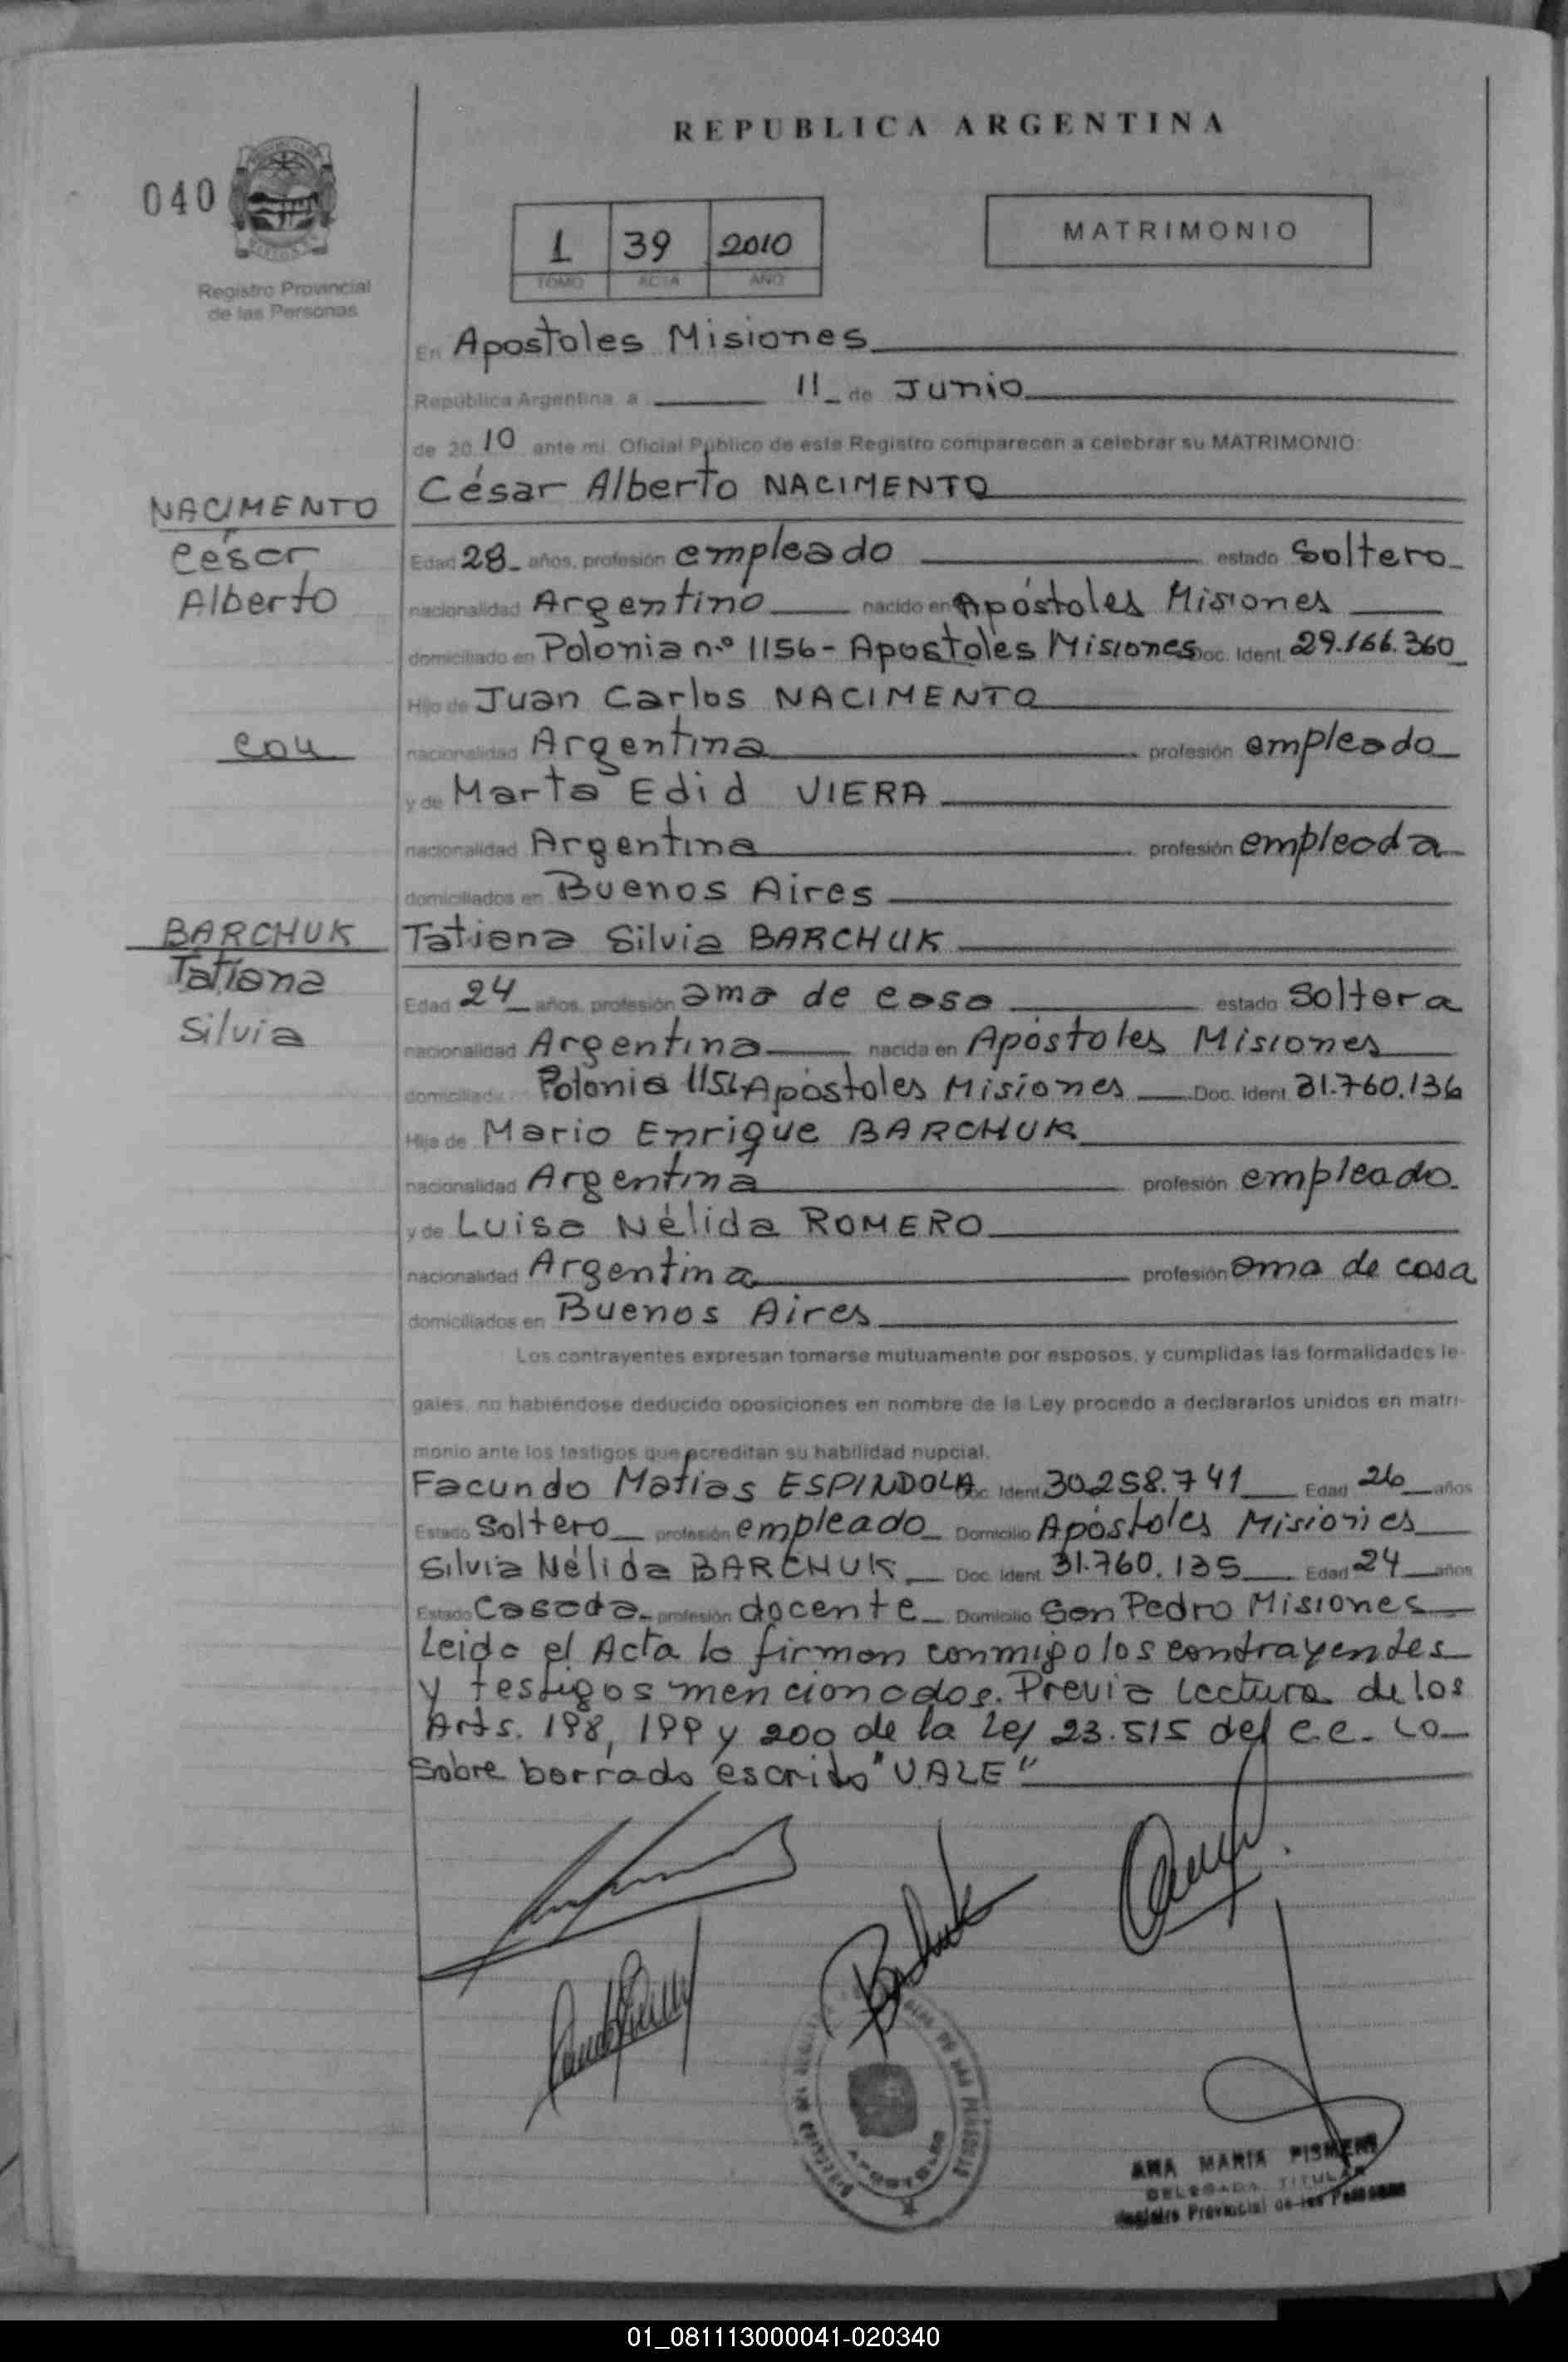 REPUBLICA ARGENTINA
040
Registro Provincial
de las Personas
1 39 2010
TOMO ACTA AÑO
MATRIMONIO
En Apostoles Misiones
República Argentina a 11 de Junio
de 2010 ante mi, Oficial Público de este Registro comparecen a celebrar su MATRIMONIO:
César Alberto NACIMENTO
NACIMENTO
César
Alberto
Edad 28 años, profesión empleado estado Soltero
nacionalidad Argentino nacido en Apóstoles Misiones
domiciliado en Polonia n.º 1156 - Apostoles Misiones Doc. Ident. 29.166.360
Hijo de Juan Carlos NACIMENTO
con
nacionalidad Argentina profesión empleado
y de Marta Edid VIERA
nacionalidad Argentina profesión empleada
domiciliados en Buenos Aires
BARCHUK
Tatiana
Silvia
Tatiana Silvia BARCHUK
Edad 24 años, profesión ama de casa estado Soltera
nacionalidad Argentina nacida en Apóstoles Misiones
Polonia Apóstoles Misiones Doc. Ident. 31.760.136
Hija de Mario Enrique BARCHUK
nacionalidad Argentina profesión empleado.
y de Luisa Nélida ROMERO
nacionalidad Argentina profesión ama de casa
domiciliados en Buenos Aires
Los contrayentes expresan tomarse mutuamente por esposos, y cumplidas las formalidades le-
gales, no habiéndose deducido oposiciones en nombre de la Ley procedo a declararlos unidos en matri-
monio ante los testigos que acreditan su habilidad nupcial.
Facundo Matias ESPINDOLA Doc. Ident. 30.258.741 Edad 26 años
Estado Soltero profesión empleado Domicilio Apóstoles Misiones
Silvia Nélida BARCHUK Doc. Ident. 31.760.135 Edad 24 años
Estado Casada profesión docente Domicilio San Pedro Misiones
Leida el Acta la firman conmigo los contrayentes
y testigos mencionados. Previa Lectura de los
Arts. 198, 199 y 200 de la Ley 23.515 del C.C. Lo
Sobre borrado escrito "VALE"
APOSTOLES
ANA MARIA
DELEGADA TITULAR
Registro Provincial de las Personas
01_081113000041-020340